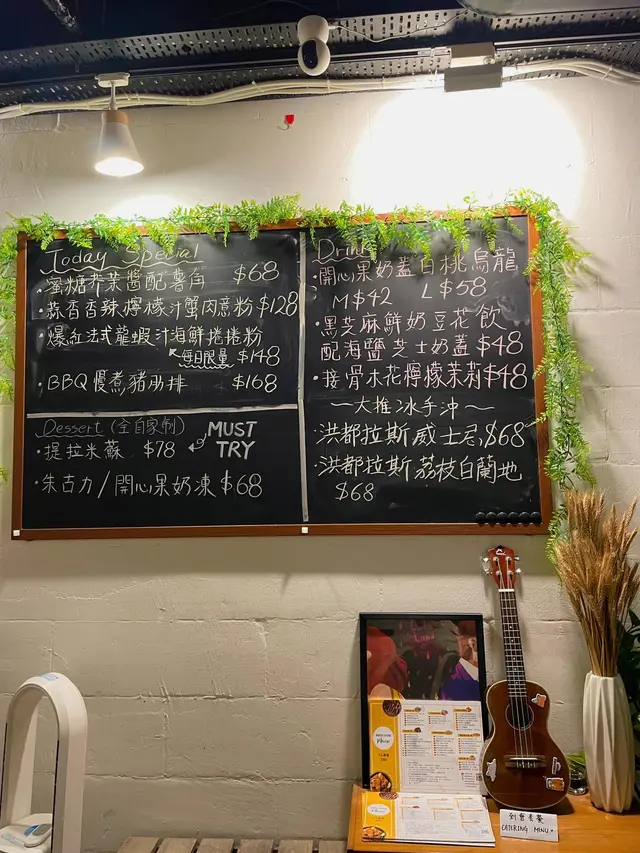 Today Special
· 蜜糖芥茉醬配薯角 $68
· 蒜香香辣檸檬汁蟹肉意粉 $128
· 爆紅法式龍蝦汁海鮮捲捲粉
每日限量 $148
· BBQ 慢煮豬肋排 $168
Dessert (全自家制)
MUST TRY
· 提拉米蘇 $78
· 朱古力/開心果奶凍 $68
Drink
· 開心果奶蓋白桃烏龍
M $42 L $58
· 黑芝麻鮮奶豆花飲
配海鹽芝士奶蓋 $48
· 接骨木花檸檬茉莉 $48
~大推冰手沖~
· 洪都拉斯威士忌 $68
· 洪都拉斯荔枝白蘭地
$68
Menu
到會套餐
CATERING MENU